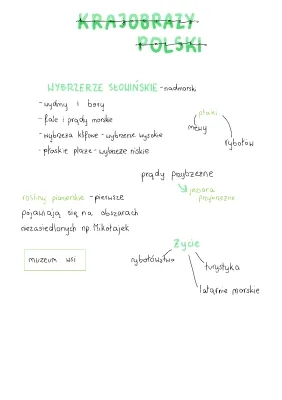 KRAJOBRAZY
POLSKI
WYBRZERZE SŁOWIŃSKIE - nadmorsk
- wydmy i bory
- fale i prądy morskie
- wybrzeża klifowe - wybrzeże wysokie
- płaskie plaże - wybrzeże niskie
ptaki
mewy
rybołów
prądy przybrzeżne
jeziora
przybrzeżne
rośliny pionierskie - pierwsze
pojawiają się na obszarach
niezasiedlonych np. Mikołajek
muzeum wsi
Życie
rybołówstwo
turystyka
latarnie morskie